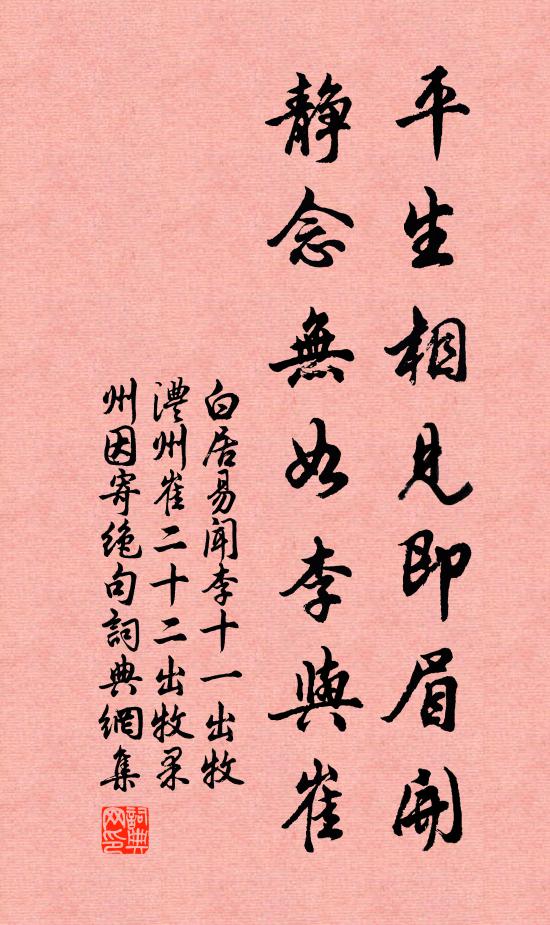 平生相見即眉開
靜念無如李與崔
白居易聞李十一出牧
澧州崔二十二出牧果
州因寄絕句詞典網集
詞典网印